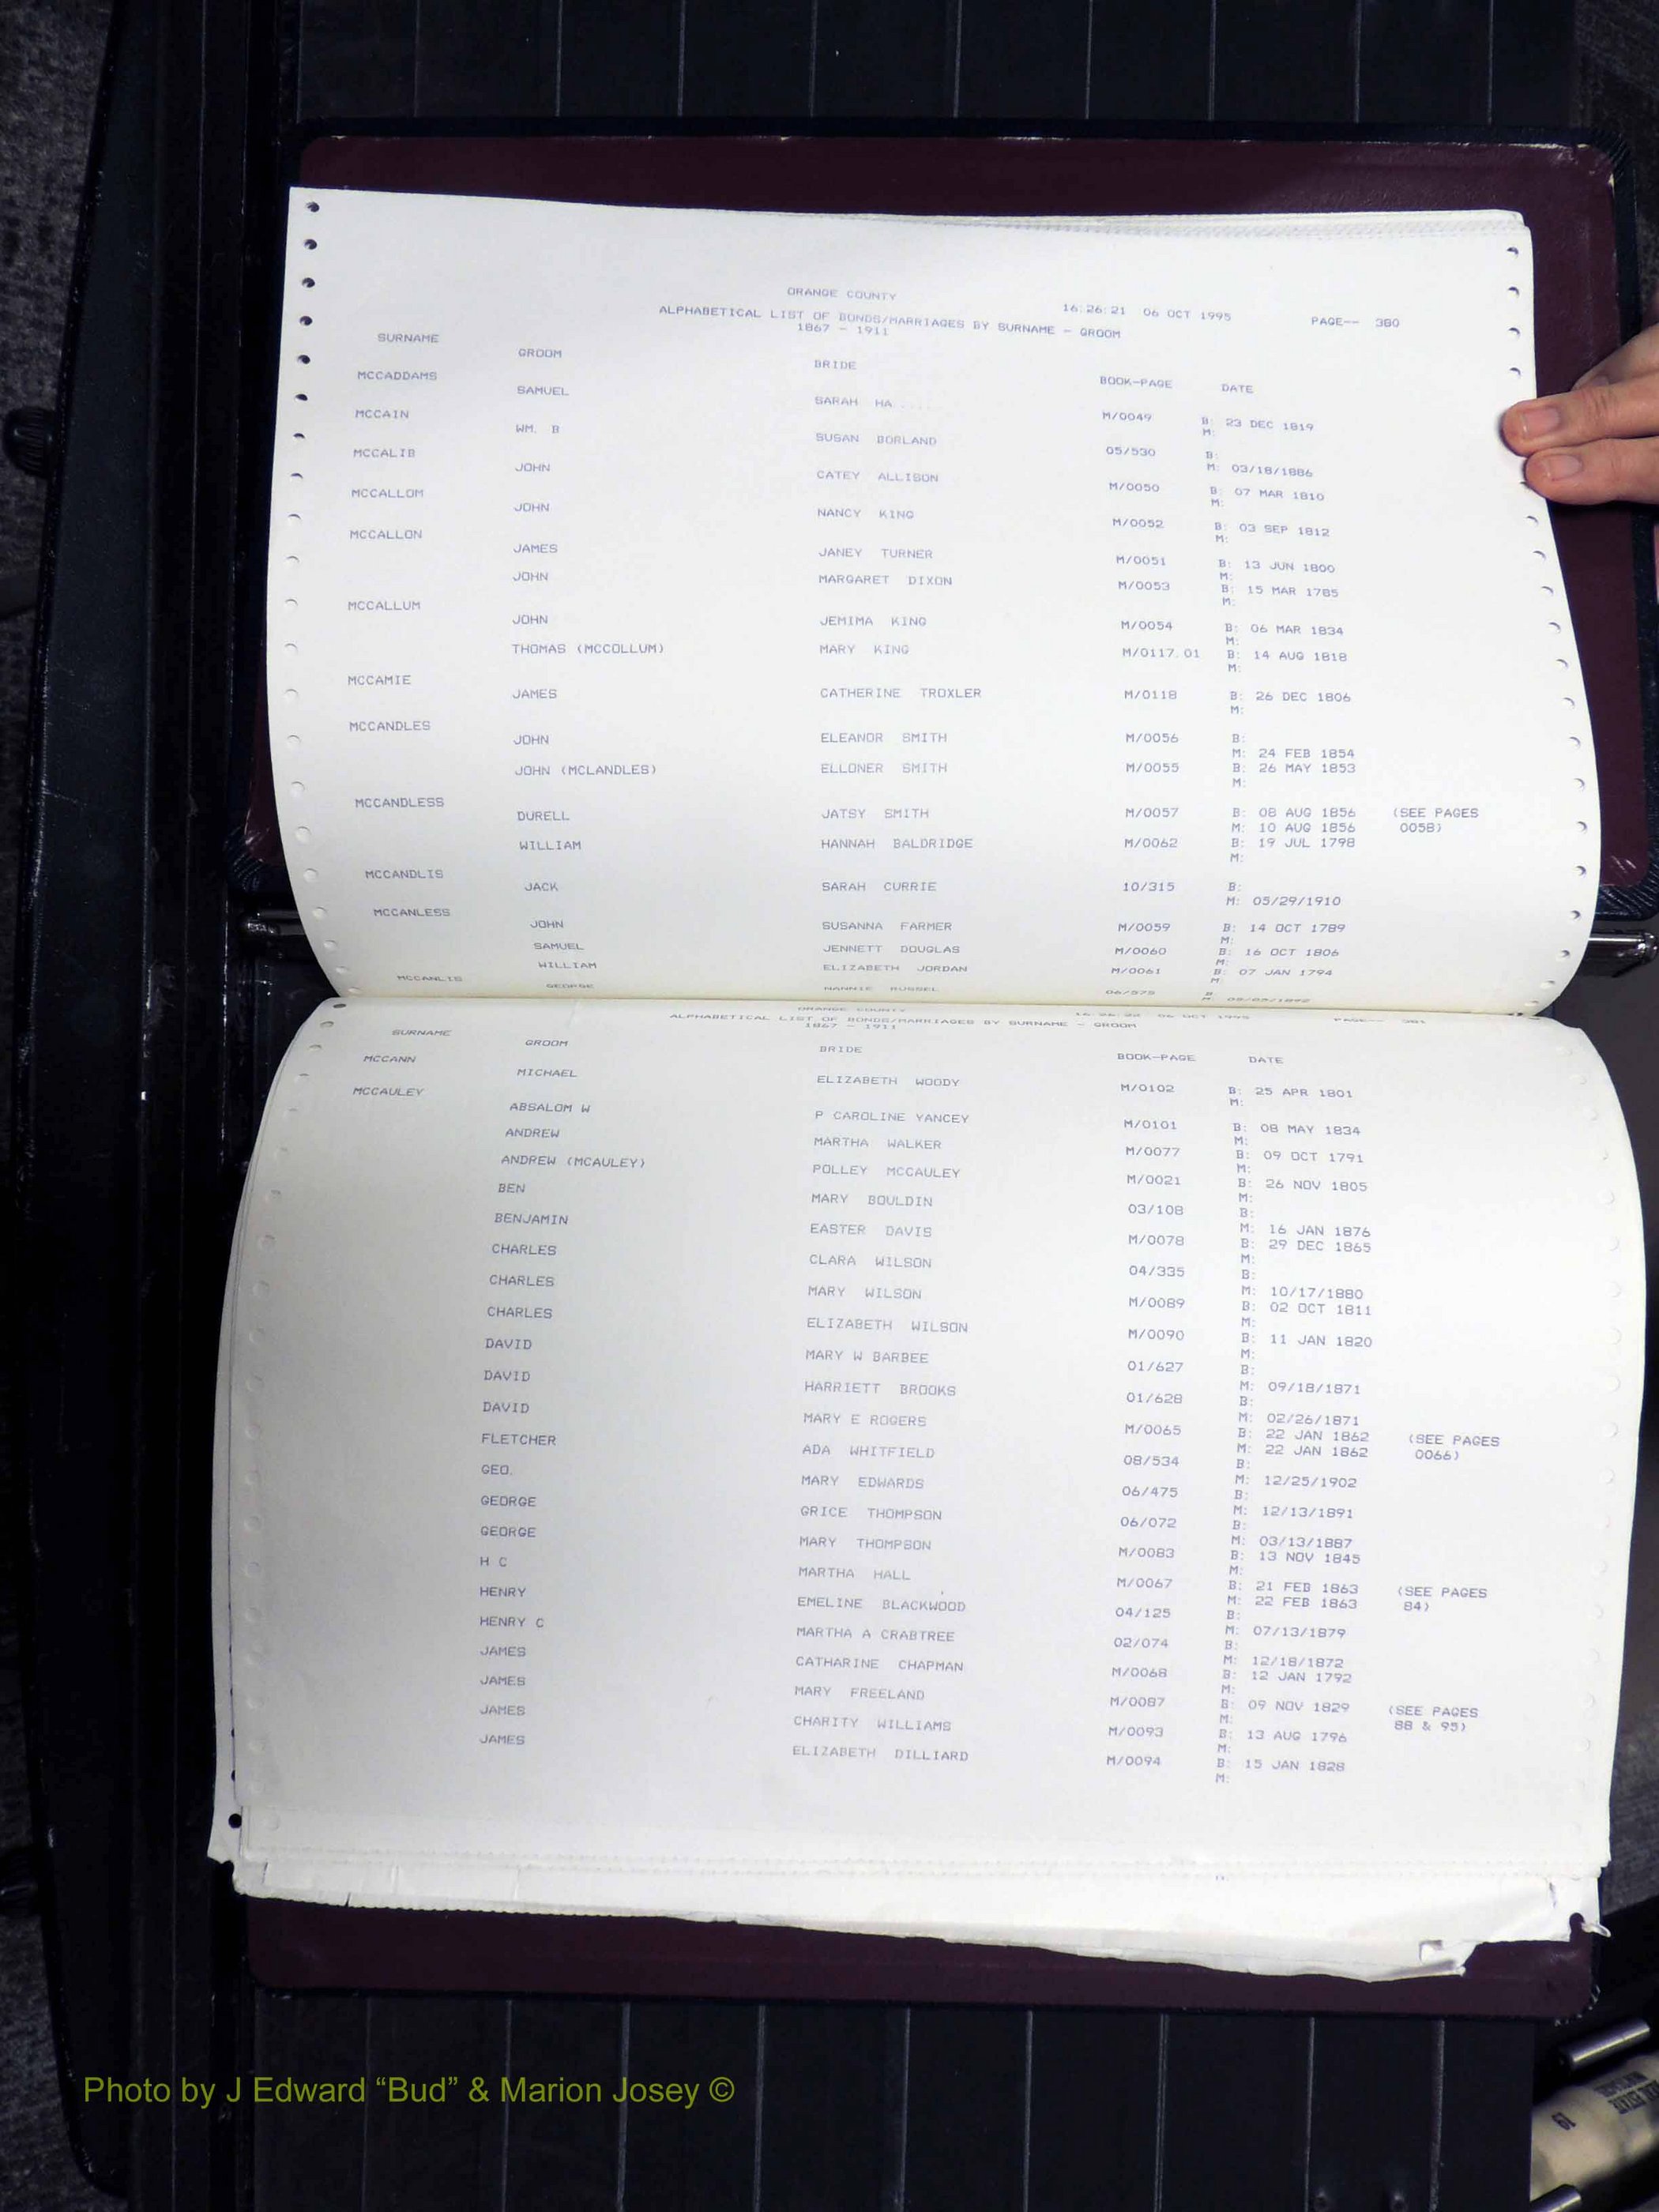 ORANGE COUNTY
16:26:21 06 OCT 1995 PAGE-- 380
ALPHABETICAL LIST OF BONDS/MARRIAGES BY SURNAME - GROOM
1867 - 1911
SURNAME GROOM BRIDE BOOK-PAGE DATE
MCCADDAMS
SAMUEL SARAH HA..... M/0049 B: 23 DEC 1819
M:
MCCAIN
WM. B SUSAN BORLAND 05/530 B:
M: 03/18/1886
MCCALIB
JOHN CATEY ALLISON M/0050 B: 07 MAR 1810
M:
MCCALLOM
JOHN NANCY KING M/0052 B: 03 SEP 1812
M:
MCCALLON
JAMES JANEY TURNER M/0051 B: 13 JUN 1800
M:
JOHN MARGARET DIXON M/0053 B: 15 MAR 1785
M:
MCCALLUM
JOHN JEMIMA KING M/0054 B: 06 MAR 1834
M:
THOMAS (MCCOLLUM) MARY KING M/0117.01 B: 14 AUG 1818
M:
MCCAMIE
JAMES CATHERINE TROXLER M/0118 B: 26 DEC 1806
M:
MCCANDLES
JOHN ELEANOR SMITH M/0056 B:
M: 24 FEB 1854
JOHN (MCLANDLES) ELLONER SMITH M/0055 B: 26 MAY 1853
M:
MCCANDLESS
DURELL JATSY SMITH M/0057 B: 08 AUG 1856 (SEE PAGES
M: 10 AUG 1856 0058)
WILLIAM HANNAH BALDRIDGE M/0062 B: 19 JUL 1798
M:
MCCANDLIS
JACK SARAH CURRIE 10/315 B:
M: 05/29/1910
MCCANLESS
JOHN SUSANNA FARMER M/0059 B: 14 OCT 1789
M:
SAMUEL JENNETT DOUGLAS M/0060 B: 16 OCT 1806
M:
WILLIAM ELIZABETH JORDAN M/0061 B: 07 JAN 1794
M:
MCCANLIS
GEORGE NANNIE RUSSEL 06/575 B:
M:
ORANGE COUNTY
16:26:22 06 OCT 1995 PAGE-- 381
ALPHABETICAL LIST OF BONDS/MARRIAGES BY SURNAME - GROOM
1867 - 1911
SURNAME GROOM BRIDE BOOK-PAGE DATE
MCCANN
MICHAEL ELIZABETH WOODY M/0102 B: 25 APR 1801
M:
MCCAULEY
ABSALOM W P CAROLINE YANCEY M/0101 B: 08 MAY 1834
M:
ANDREW MARTHA WALKER M/0077 B: 09 OCT 1791
M:
ANDREW (MCAULEY) POLLEY MCCAULEY M/0021 B: 26 NOV 1805
M:
BEN MARY BOULDIN 03/108 B:
M: 16 JAN 1876
BENJAMIN EASTER DAVIS M/0078 B: 29 DEC 1865
M:
CHARLES CLARA WILSON 04/335 B:
M: 10/17/1880
CHARLES MARY WILSON M/0089 B: 02 OCT 1811
M:
CHARLES ELIZABETH WILSON M/0090 B: 11 JAN 1820
M:
DAVID MARY W BARBEE 01/627 B:
M: 09/18/1871
DAVID HARRIETT BROOKS 01/628 B:
M: 02/26/1871
DAVID MARY E ROGERS M/0065 B: 22 JAN 1862 (SEE PAGES
M: 22 JAN 1862 0066)
FLETCHER ADA WHITFIELD 08/534 B:
M: 12/25/1902
GEO. MARY EDWARDS 06/475 B:
M: 12/13/1891
GEORGE GRICE THOMPSON 06/072 B:
M: 03/13/1887
GEORGE MARY THOMPSON M/0083 B: 13 NOV 1845
M:
H C MARTHA HALL M/0067 B: 21 FEB 1863 (SEE PAGES
M: 22 FEB 1863 84)
HENRY EMELINE BLACKWOOD 04/125 B:
M: 07/13/1879
HENRY C MARTHA A CRABTREE 02/074 B:
M: 12/18/1872
JAMES CATHARINE CHAPMAN M/0068 B: 12 JAN 1792
M:
JAMES MARY FREELAND M/0087 B: 09 NOV 1829 (SEE PAGES
M: 88 & 95)
JAMES CHARITY WILLIAMS M/0093 B: 13 AUG 1796
M:
JAMES ELIZABETH DILLIARD M/0094 B: 15 JAN 1828
M:
Photo by J Edward “Bud” & Marion Josey ©
19